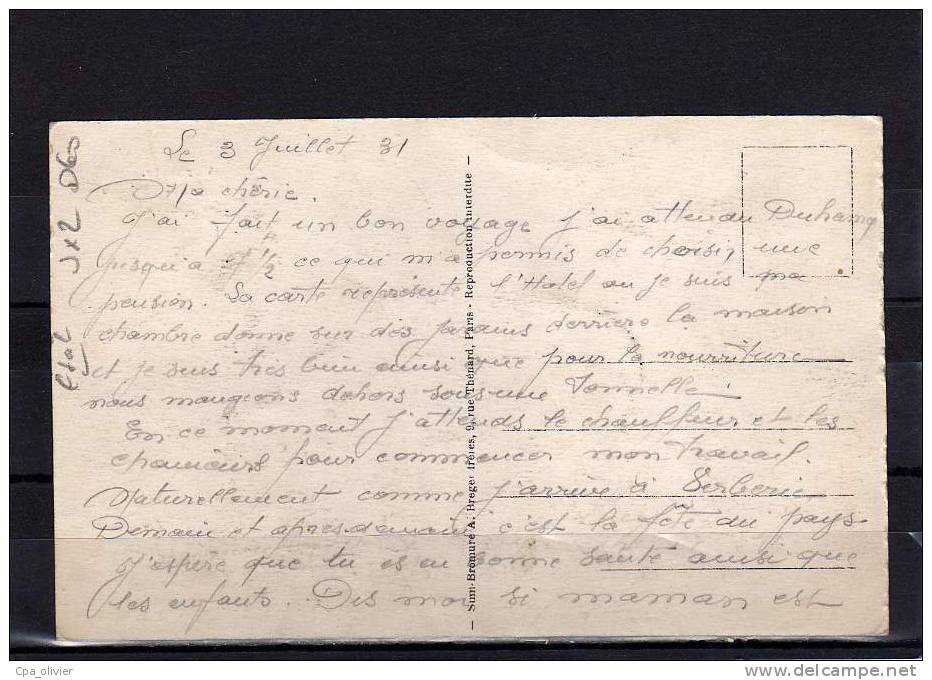 Le 3 Juillet 31
Ma chérie.
J'ai fait un bon voyage j'ai attendu Duhamq
jusqu'à 7 1/2 ce qui m'a permis de choisir une
pension. La carte représente l'Hotel ou je suis ma
chambre donne sur des jardins derrière la maison
et je suis très bien ainsi que pour la nourriture
nous mangeons dehors sous une tonnelle!
En ce moment j'attends le chauffeur et les
pour commencer mon travail.
Naturellement comme j'arrive à Verberie
Demain et après-demain c'est la fête du pays.
J'espère que tu es en bonne santé ainsi que
les enfants. Dis moi si maman est
Sum-Bromure A. Breger frères, 9, rue Thénard, Paris - Reproduction interdite
J x 2 D60
Cpa_olivier
delcampe.net